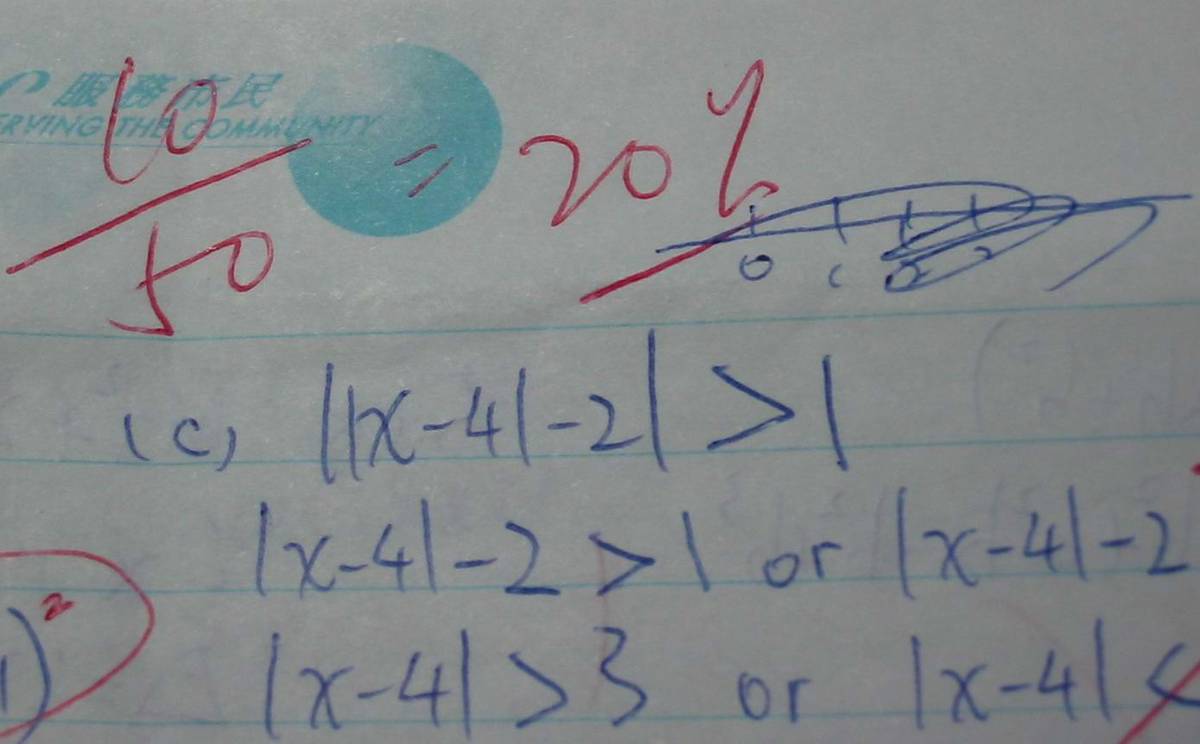 服務市民
ERVING THE COMMUNITY
10/50 = 20%
0 1 2
(c) ||x-4|-2| > 1
|x-4|-2 > 1 or |x-4|-2
1)²
|x-4| > 3 or |x-4| <